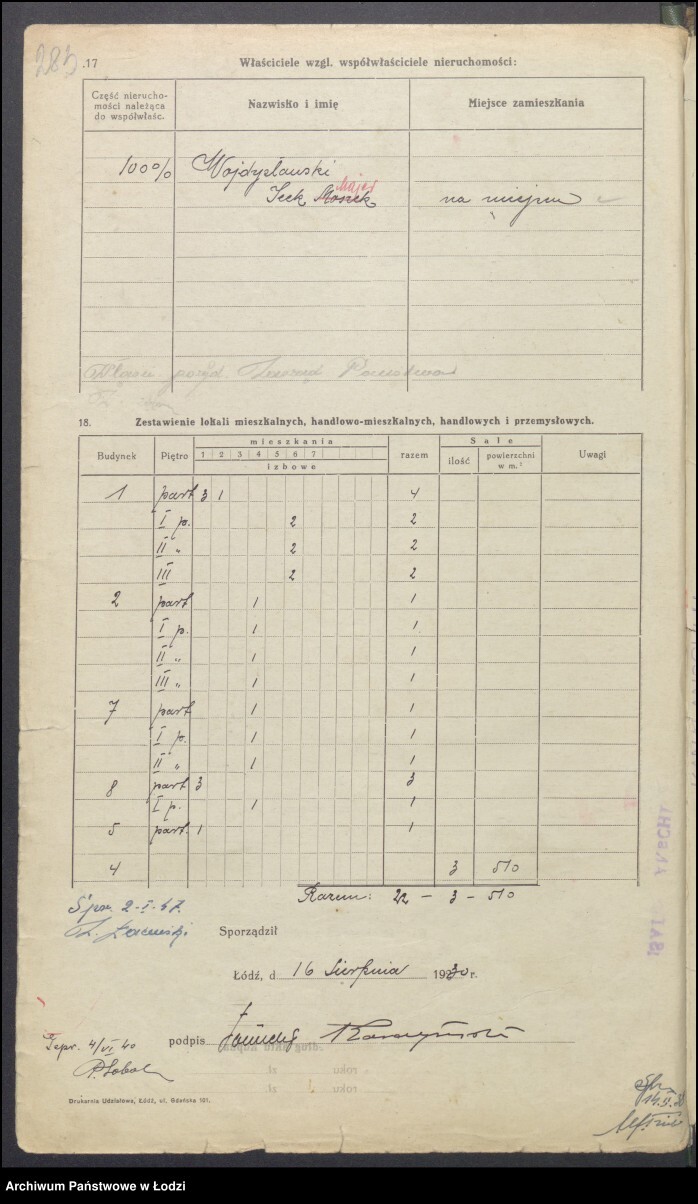 285
.17 Właściciele wzgl. współwłaściciele nieruchomości:
Część nierucho-
mości należąca
do współwłaśc.
Nazwisko i imię
Miejsce zamieszkania
100%
Wojdysławski
Majer
Icek Moszek
na miejscu
18. Zestawienie lokali mieszkalnych, handlowo-mieszkalnych, handlowych i przemysłowych.
Budynek Piętro mieszkania razem Sale Uwagi
1 2 3 4 5 6 7 ilość powierzchni
w m.²
izbowe
1 part 3 1 4
I p. 2 2
II „ 2 2
III 2 2
2 part 1 1
I p. 1 1
II „ 1 1
III „ 1 1
7 part 1 1
I p. 1 1
II „ 1 1
8 part 3 3
I p. 1 1
5 part. 1 1
4 3 510
Razem: 22 – 3 – 510
Spr. 2-I-47.
Sporządził
Łódź, d 16 Sierpnia 1930 r.
podpis
4/VI 40
Drukarnia Udziałowa, Łódź, ul. Gdańska 101.
Archiwum Państwowe w Łodzi